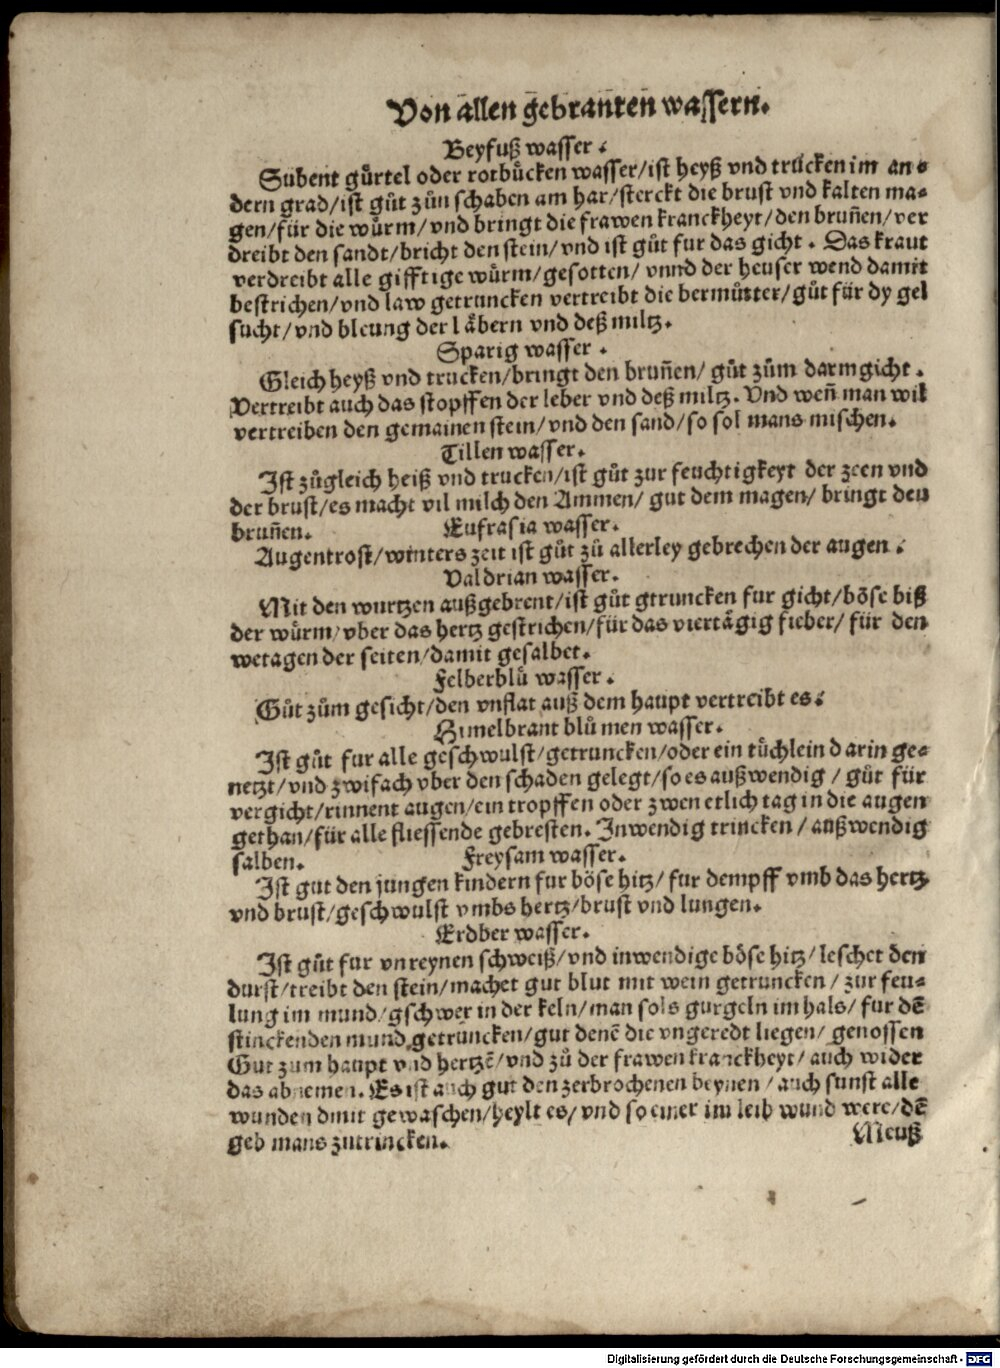 Von allen gebranten wassern.
Beyfuß wasser.
Subent gürtel oder rotbücken wasser/ist heyß vnd trucken im an⸗
dern grad/ist gůt zůn schaben am har/sterckt die brust vnd kalten ma⸗
gen/für die würm/vnd bringt die frawen kranckheyt/den bruñen/ver
dreibt den sandt/bricht den stein/vnd ist gůt fur das gicht. Das kraut
verdreibt alle gifftige würm/gesotten/ vnnd der heuser wend damit
bestrichen/vnd law getruncken vertreibt die bermůtter/gůt für dy gel
sucht/vnd bleung der låbern vnd deß miltz.
Sparig wasser.
Gleich heyß vnd trucken/bringt den bruñen/ gůt zům darmgicht.
Vertreibt auch das stopffen der leber vnd deß miltz. Vnd weñ man wil
vertreiben den gemainen stein/vnd den sand/so sol mans mischen.
Tillen wasser.
Ist zůgleich heiß vnd trucken/ist gůt zur feuchtigkeyt der zeen vnd
der brust/es macht vil milch den Ammen/ gut dem magen/ bringt den
bruñen. Eufrasia wasser.
Augentrost/winters zeit ist gůt zů allerley gebrechen der augen.
Valdrian wasser.
Mit den wurtzen außgebrent/ist gůt gtruncken fur gicht/böse biß
der würm/vber das hertz gestrichen/für das viertägig fieber/ für den
wetagen der seiten/damit gesalbet.
Felberblů wasser.
Gůt zům gesicht/den vnflat auß dem haupt vertreibt es.
Himelbrant blůmen wasser.
Ist gůt fur alle geschwulst/getruncken/oder ein tüchlein darin ge⸗
netzt/vnd zwifach vber den schaden gelegt/so es außwendig/ gůt für
vergicht/rinnent augen/ein tropffen oder zwen etlich tag in die augen
gethan/für alle fliessende gebresten. Inwendig trincken/ außwendig
salben. Freysam wasser.
Ist gut den jungen kindern fur böse hitz/ fur dempff vmb das hertz
vnd brust/geschwulst vmbs hertz/brust vnd lungen.
Erdber wasser.
Ist gůt fur vnreynen schweiß/vnd inwendige böse hitz/ leschet den
durst/treibt den stein/machet gut blut mit wein getruncken/ zur feu⸗
lung im mund/gschwer in der keln/man sols gurgeln im hals/ fur dē
stinckenden mund getruncken/gut denē die vngeredt liegen/ genossen
Gut zum haupt vnd hertzē/vnd zů der frawen kranckheyt/ auch wider
das abnemen. Es ist auch gut den zerbrochenen beynen/ auch sunst alle
wunden dmit gewaschen/heylt es/ vnd so einer im leib wund were/dē
geb mans zutrincken.
Meuß
Digitalisierung gefördert durch die Deutsche Forschungsgemeinschaft - DFG